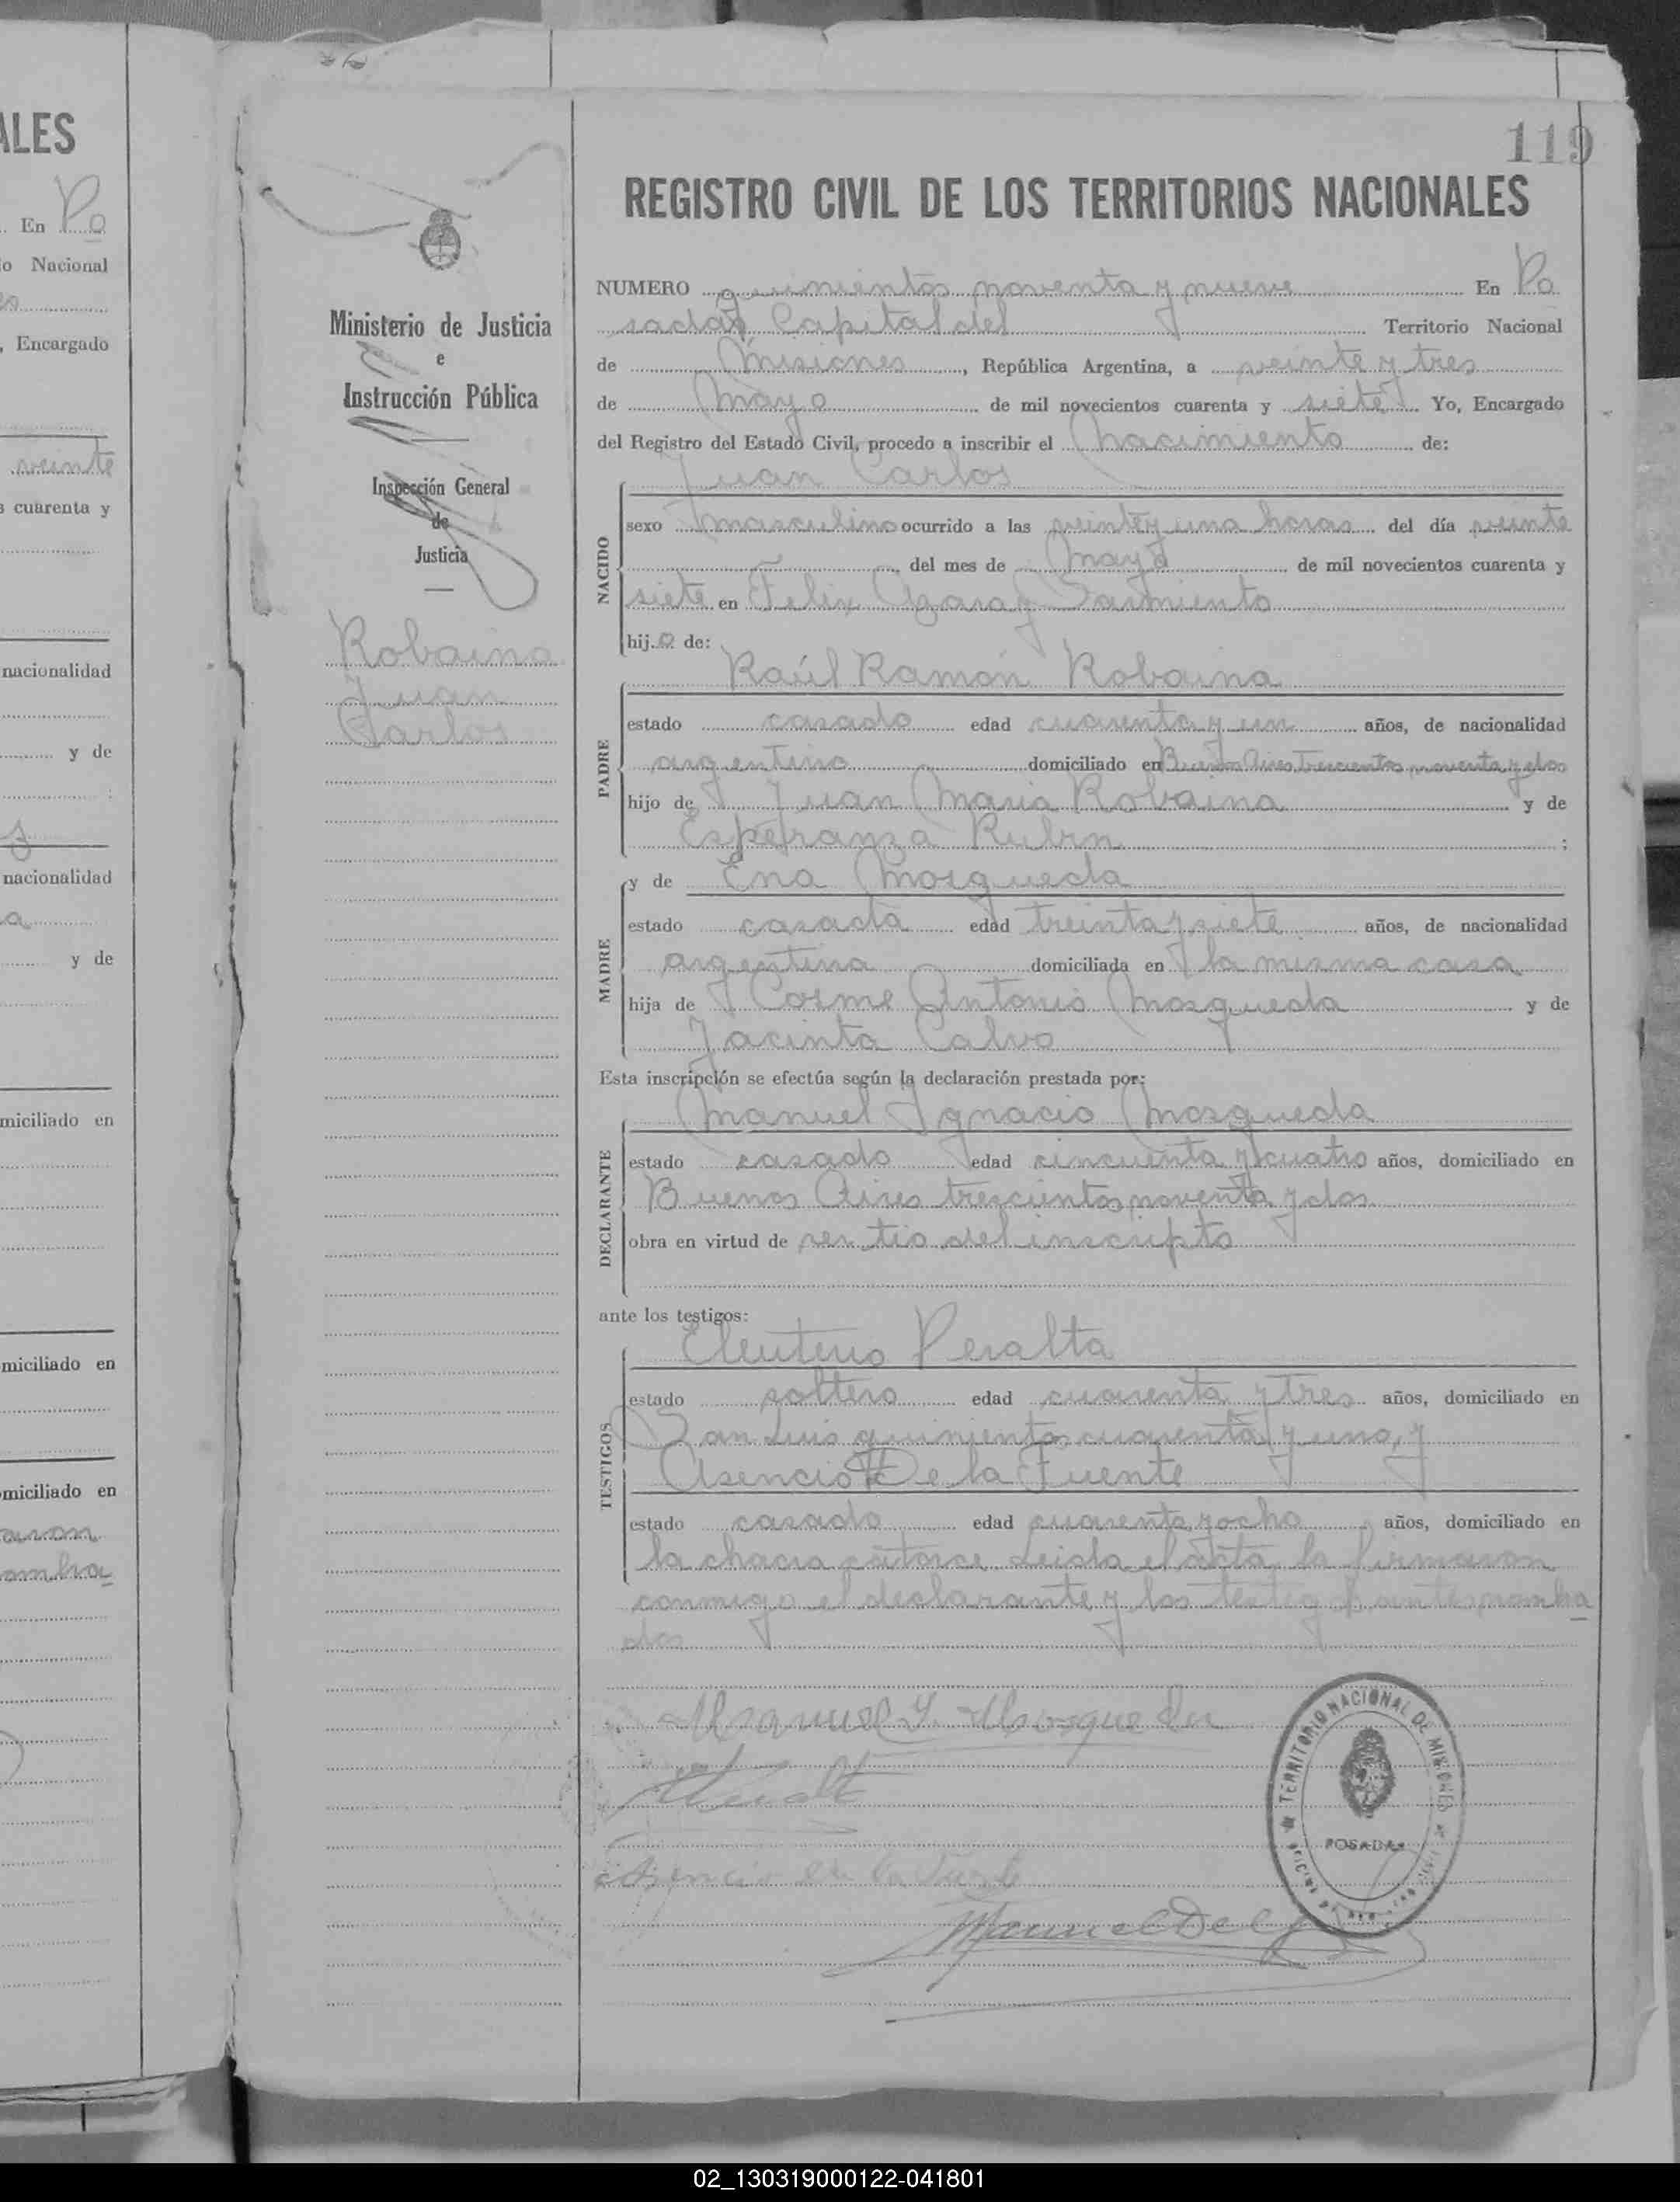 ALES
En Po
o Nacional
, Encargado
veinte
s cuarenta y
nacionalidad
y de
nacionalidad
a
y de
miciliado en
miciliado en
miciliado en
aron
ombra
119
REGISTRO CIVIL DE LOS TERRITORIOS NACIONALES
Ministerio de Justicia
e
Instrucción Pública
Inspección General
de
Justicia
Robaina
Juan
Carlos
NUMERO quinientos noventa y nueve En Po
sadas Capital del Territorio Nacional
de Misiones, República Argentina, a veinte y tres
de Mayo de mil novecientos cuarenta y siete Yo, Encargado
del Registro del Estado Civil, procedo a inscribir el Nacimiento de:
Juan Carlos
NACIDO
sexo masculino ocurrido a las veinte y una horas del día veinte
del mes de Mayo de mil novecientos cuarenta y
siete en Felix Azara y Sarmiento
hijo de:
Raúl Ramón Robaina
PADRE
estado casado edad cuarenta y un años, de nacionalidad
argentino domiciliado en Buenos Aires trescientos noventa y dos
hijo de Juan Maria Robaina y de
Esperanza Rubin ;
MADRE
y de Ena Mosqueda
estado casada edad treinta y siete años, de nacionalidad
argentina domiciliada en la misma casa
hija de Cosme Antonio Mosqueda y de
Jacinta Calvo
Esta inscripción se efectúa según la declaración prestada por:
Manuel Ignacio Mosqueda
DECLARANTE
estado casado edad cincuenta y cuatro años, domiciliado en
Buenos Aires trescientos noventa y dos
obra en virtud de ser tio del inscripto
ante los testigos:
Eleuterio Peralta
TESTIGOS
estado soltero edad cuarenta y tres años, domiciliado en
San Luis quinientos cuarenta y uno, y
Asencio De la Fuente
estado casado edad cuarenta y ocho años, domiciliado en
la chacra catorce Leida el acta la firmaron
conmigo el declarante y los testigos antes nombra
dos
Manuel I. Mosqueda
Asencio de la Fuente
Manuel Del
TERRITORIO NACIONAL DE MISIONES
POSADAS
02_130319000122-041801